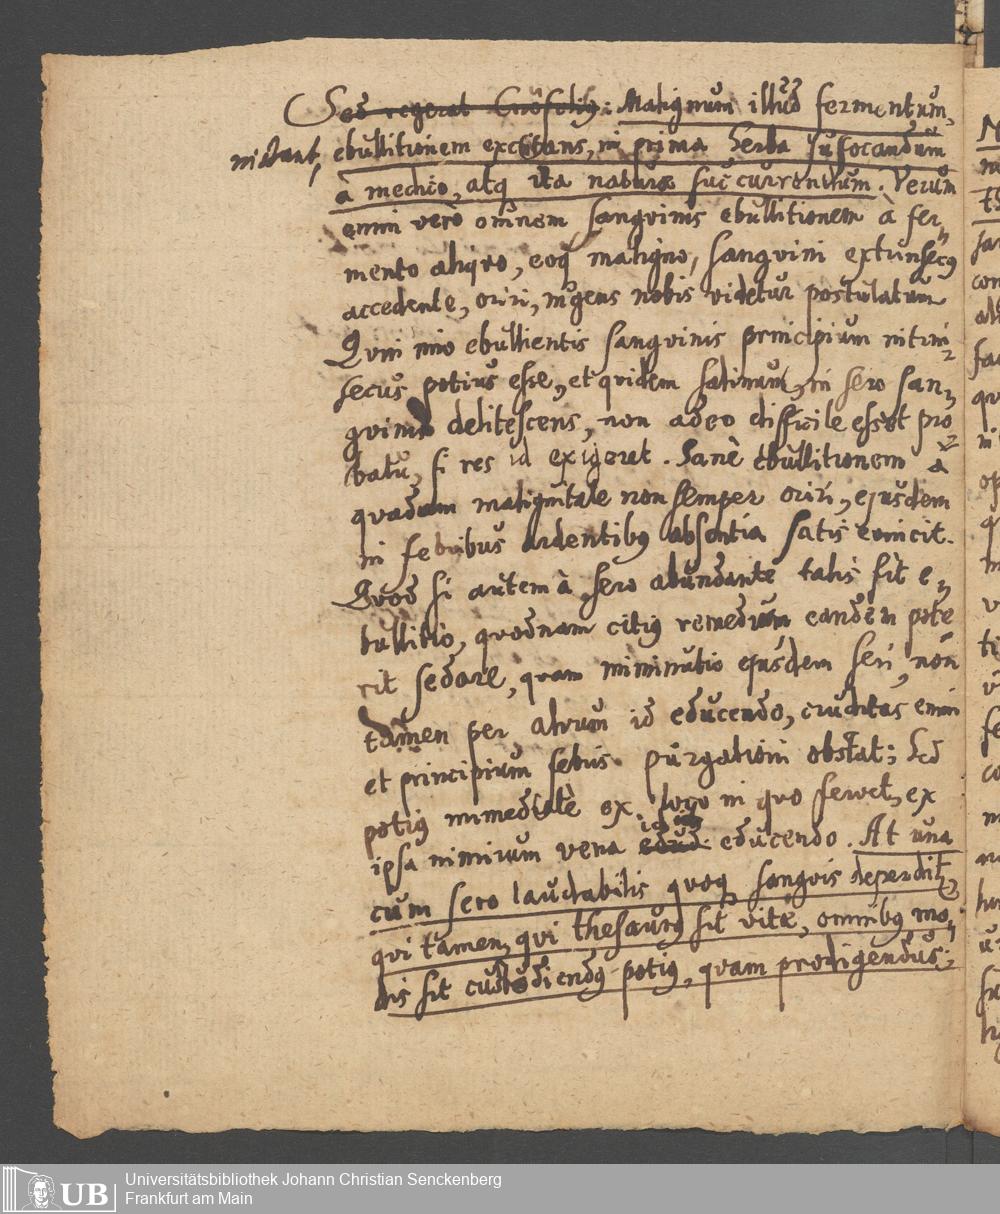 Sed regerat : Malignum illud fermentum,
instant, ebullitionem excitans, in prima herba suffocandum
à medico, atq ita naturæ succurrendum. Verum
enim verò omnem sangvinis ebullitionem à fer-
mento aliqvo, eoq maligno, sangvini extrinsecus
accedente, oriri, ingens nobis videtur postulatum
Qvin imo ebullientis sangvinis principium intrin-
secus potius esse, et qvidem salinum, in sero san-
gvinis delitescens, non adeo difficile esset pro-
batu, si res id exigeret. Sanè ebullitionem à
qvadam malignitate non semper oriri, ejusdem
in febribus ardentibus absentia satis evincit.
Qvod si autem à sero abundante talis sit e-
bullitio, qvodnam citius remedium eandem pote
rit sedare, qvam imminutio ejusdem seri, non
tamen per alvum id educendo, cruditas enim
et principium febris purgationi obstat; Sed
potius immediatè ex loco in qvo fervet, ex
ipsa nimirum vena id educendo. At una
cum sero laudabilis qvoq sangvis deperdit,
qvi tamen, qvi thesaurus sit vitæ, omnibus mo-
dis sit custodiendus potius, qvam prodigendus;
UB Universitätsbibliothek Johann Christian Senckenberg
Frankfurt am Main